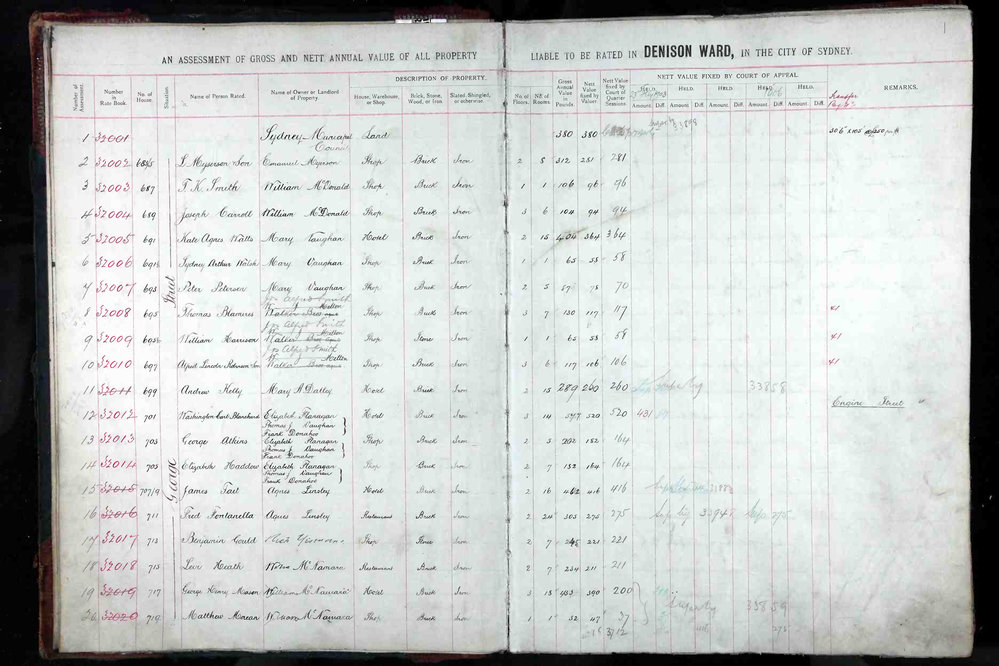 1
AN ASSESSMENT OF GROSS AND NETT ANNUAL VALUE OF ALL PROPERTY LIABLE TO BE RATED IN DENISON WARD, IN THE CITY OF SYDNEY.
DESCRIPTION OF PROPERTY. NETT VALUE FIXED BY COURT OF APPEAL
Number of Assessment. Number in Rate Book. No. of House. Situation Name of Person Rated. Name of Owner or Landlord of Property. House, Warehouse, or Shop. Brick, Stone, Wood, or Iron. Slated, Shingled, or otherwise. No. of Floors. No. of Rooms Gross Annual Value in Pounds. Nett Value fixed by Valuer. Nett Value fixed by Court of Quarter Sessions HELD, HELD, HELD, HELD, REMARKS.
Amount Diff. Amount Diff. Amount Diff. Amount Diff.
George Street
1 32001 Sydney Municipal Council Land 380 380
2 32002 Emanuel Myerson Shop Brick Iron 2 8 312 281 281
3 32003 687 T K Smith William McDonald Shop Brick Iron 1 1 106 96 96
4 32004 689 Joseph Carroll William McDonald Shop Brick Iron 3 6 104 94 94
5 32005 691 Kate Agnes Watts Mary Vaughan Hotel Brick Iron 2 15 404 364 364
6 32006 691½ Sydney Arthur Walsh Mary Vaughan Shop Brick Iron 1 1 65 58 58
7 32007 693 Peter Petersen Mary Vaughan Shop Brick Iron 2 5 78 70
for Alfred Smith
8 32008 695 Thomas Blamires Walker Bros Shop Brick Iron 3 7 130 117 117 41
for Alfred Smith
9 32009 695½ William Harrison Walker Bros Shop Stone Iron 1 1 65 58 58 41
for Alfred Smith
10 32010 697 Walker Bros Shop Brick Iron 3 6 117 106 106 41
11 32011 699 Andrew Kelly Mary A Dalley Hotel Brick Iron 2 15 289 260 260 33858
Engine Street
12 32012 701 Elizabeth Flanagan Hotel Brick Iron 3 14 577 520 520 431
Thomas J Vaughan
Frank Donahoo
13 32013 703 George Atkins Elizabeth Flanagan Shop Brick Iron 2 5 182 164
Thomas J Vaughan
Frank Donahoo
14 32014 705 Elizabeth Haddow Elizabeth Flanagan Shop Brick Iron 2 7 182 164 164
Thomas J Vaughan
Frank Donahoo
15 32015 707/9 James Tait Agnes Linsley Hotel Brick Iron 2 16 462 416 416
16 32016 711 Fred Fontanella Agnes Linsley Restaurant Brick Iron 2 24 305 275 275 33948 275
17 32017 713 Benjamin Gould Shop Stone Iron 2 7 221 221
18 32018 715 Levi Heath McNamara Restaurant Brick Iron 2 7 234 211 211
19 32019 717 George Henry Mason William McNamara Hotel Brick Iron 3 15 433 390 200
20 32020 719 Matthew McNamara Shop Brick Iron 1 1 52 47 37 33859
3712